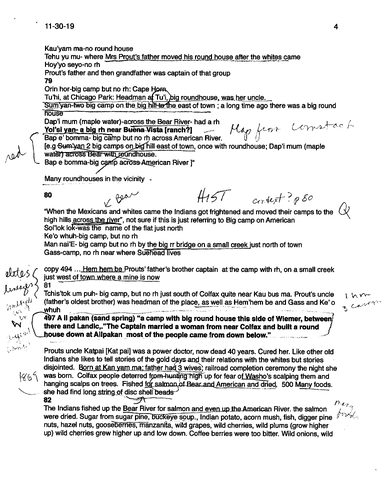 11-30-19 4
Kau'yam ma-no round house
Tehu yu mu- where Mrs Prout's father moved his round house after the whites came
Hoy'yo seyo-no rh
Prout's father and then grandfather was captain of that group
79
Orin hor-big camp but no rh: Cape Horn
Tu'hi, at Chicago Park: Headman at Tu'i, big roundhouse, was her uncle.
Sum'yan-two big camp on the big hill to the east of town ; a long time ago there was a big round
house
Dap'i mum (maple water)-across the Bear River- had a rh
Yol'si yan- a big rh near Buena Vista [ranch?]
Map from Comstock
Bap e' bomma- big camp but no rh across American River.
red
[e.g Sum'yan 2 big camps on big hill east of town, once with roundhouse; Dap'i mum (maple
water) across Bear with roundhouse.
Bap e bomma-big camp across American River ]"
Many roundhouses in the vicinity
Bear
80
HIST context? p80
"When the Mexicans and whites came the Indians got frightened and moved their camps to the
high hills across the river", not sure if this is just referring to Big camp on American
Q
Sol'lok lok-was the name of the flat just north
Ke'o whuh-big camp, but no rh
Man nai'E- big camp but no rh by the big rr bridge on a small creek just north of town
Gass-camp, no rh near where Suehead lives
copy 494 ... Hem hem be Prouts' father's brother captain at the camp with rh, on a small creek
just west of town where a mine is now
81
'Tchis'tok um puh- big camp, but no rh just south of Colfax quite near Kau bus ma. Prout's uncle
(father's oldest brother) was headman of the place, as well as Hem hem be and Gass and Ke' o
whuh
497 All pakan (sand spring) "a camp with big round house this side of Wiemer, between
there and Landic,."The Captain married a woman from near Colfax and built a round
house down at Ailpakan most of the people came from down below."
Prouts uncle Katpai [Kat pai] was a power doctor, now dead 40 years. Cured her. Like other old
Indians she likes to tell stories of the gold days and their relations with the whites but stories
disjointed. Born at Kan yam ma; father had 3 wives; railroad completion ceremony the night she
1869
was born. Colfax people deterred from hunting high up for fear of Washo's scalping them and
hanging scalps on trees. Fished for salmon of Bear and American and dried. 500 Many foods.
she had find long string of disc shell beads
82
The Indians fished up the Bear River for salmon and even up the American River, the salmon
were dried. Sugar from sugar pine, buckeye soup., Indian potato, acorn mush, fish, digger pine
nuts, hazel nuts, gooseberries, manzanita, wild grapes, wild cherries, wild plums (grow higher
up) wild cherries grew higher up and low down. Coffee berries were too bitter. Wild onions, wild